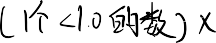 (1个<1.0的数)×